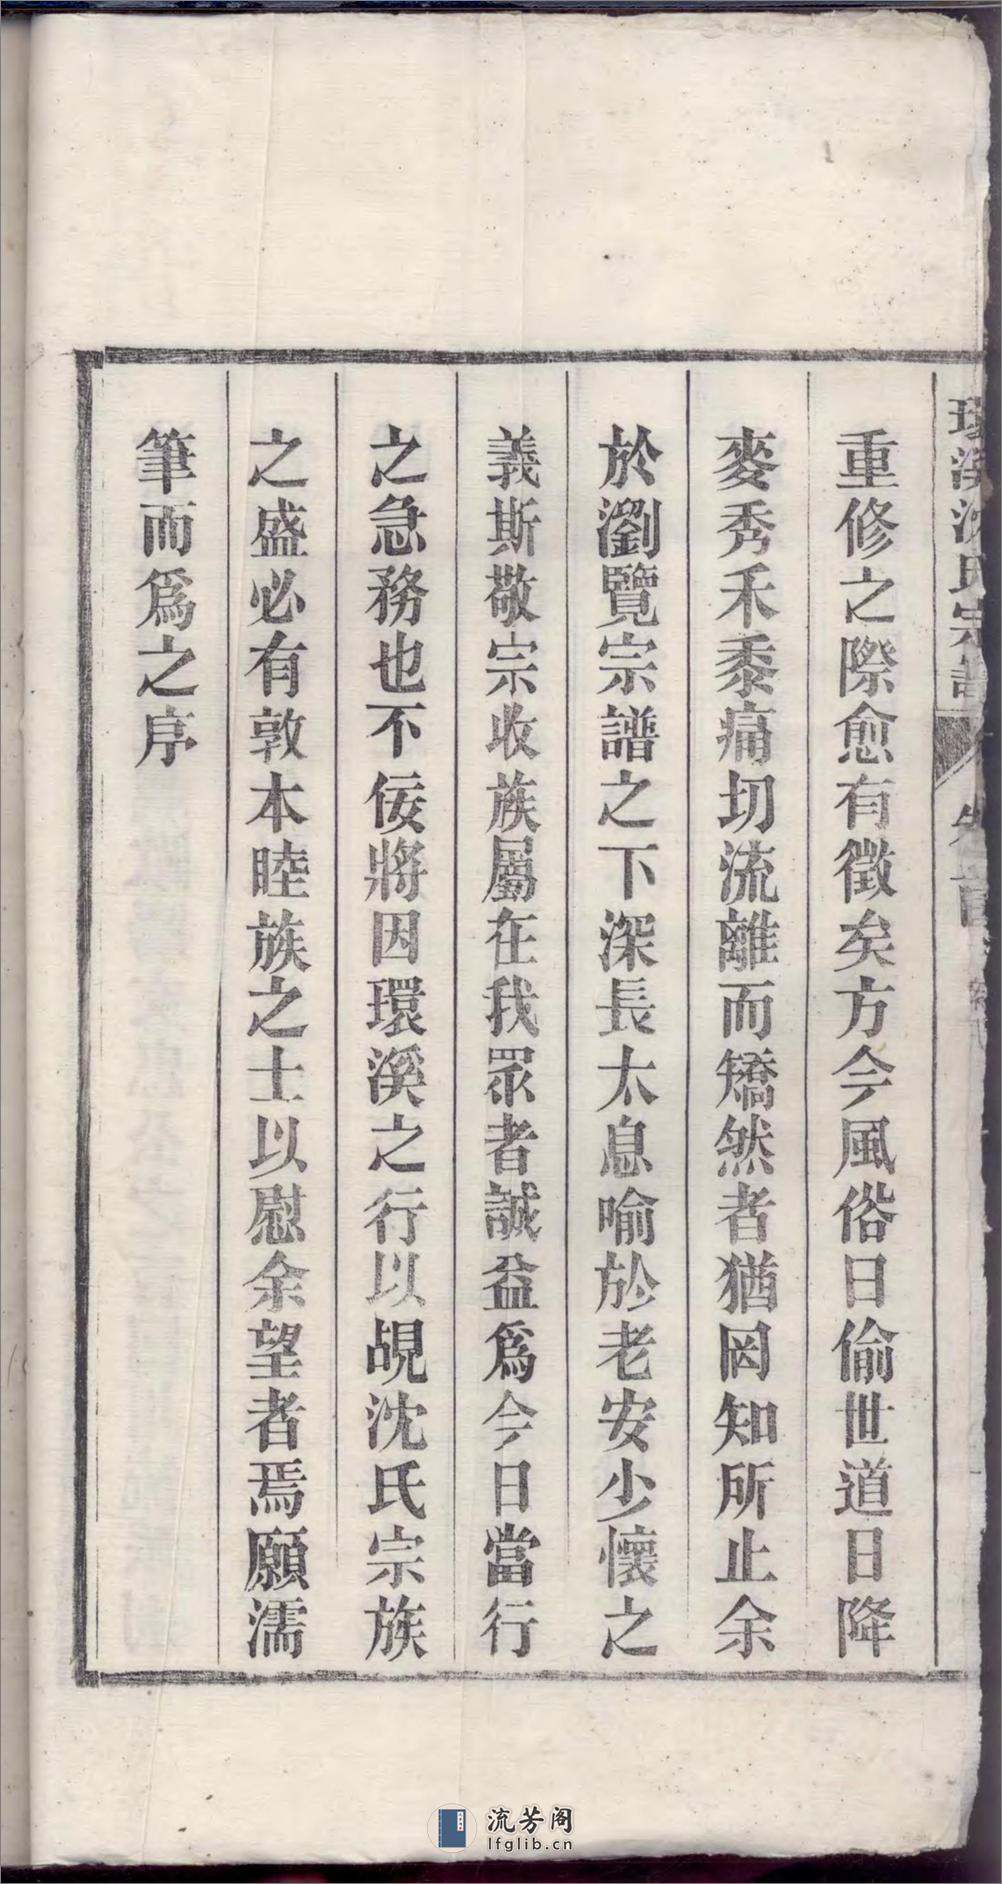 環溪沈氏宗譜 卷首
重修之際愈有徵矣方今風俗日偷世道日降
麥秀禾黍痛切流離而矯然者猶罔知所止余
於瀏覽宗譜之下深長太息喻於老安少懷之
義斯敬宗收族屬在我眾者誠益爲今日當行
之急務也不佞將因環溪之行以覘沈氏宗族
之盛必有敦本睦族之士以慰余望者焉願濡
筆而爲之序
流芳阁
lfglib.cn